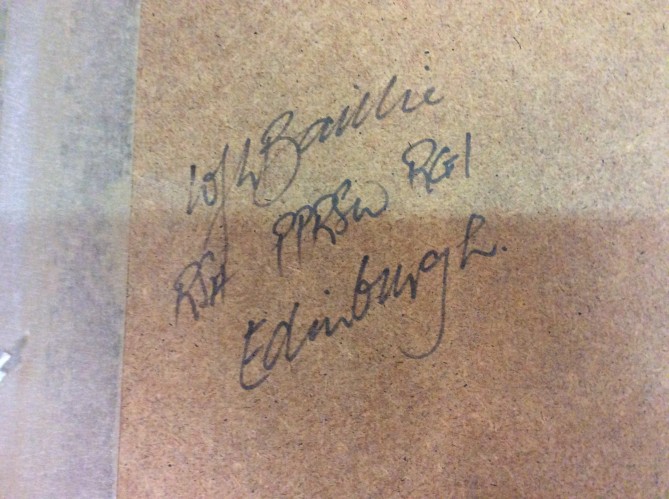 WJLBaillie
RSA PPRSW RGI
Edinburgh.